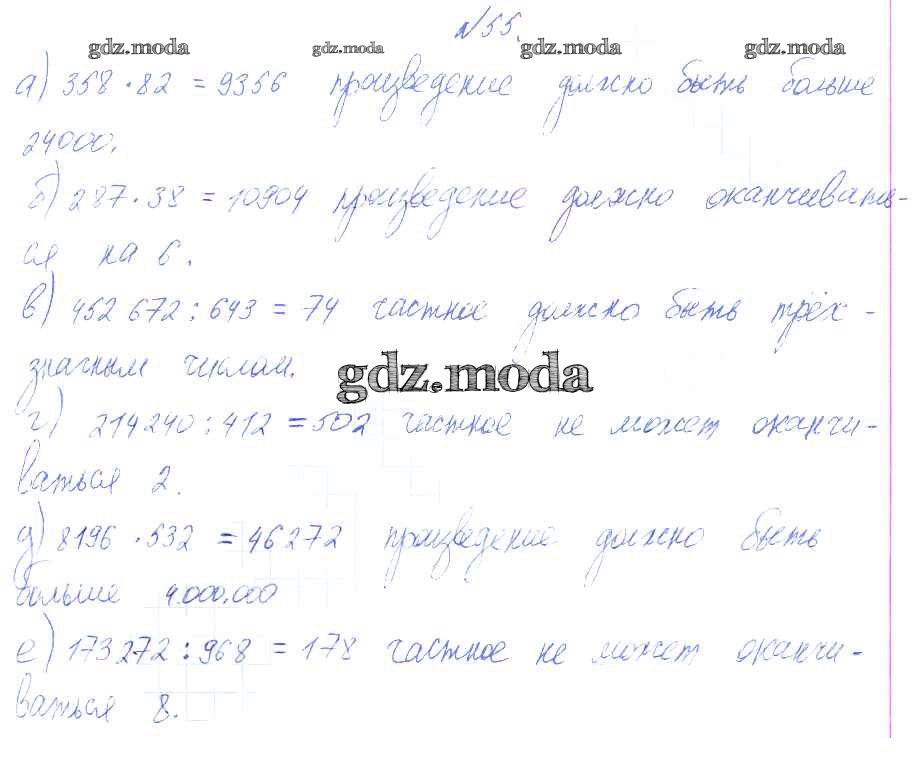 №55.
gdz.moda gdz.moda gdz.moda gdz.moda
а) 358 · 82 = 9356 произведение должно быть больше
24000.
б) 287 · 38 = 10904 произведение должно оканчивать-
ся на 6.
в) 452 672 : 643 = 74 частное должно быть трёх-
значным числом.
gdz.moda
г) 214240 : 412 = 502 частное не может оканчи-
ваться 2.
д) 8196 · 532 = 46272 произведение должно быть
больше 4.000.000
е) 173272 : 968 = 178 частное не может оканчи-
ваться 8.